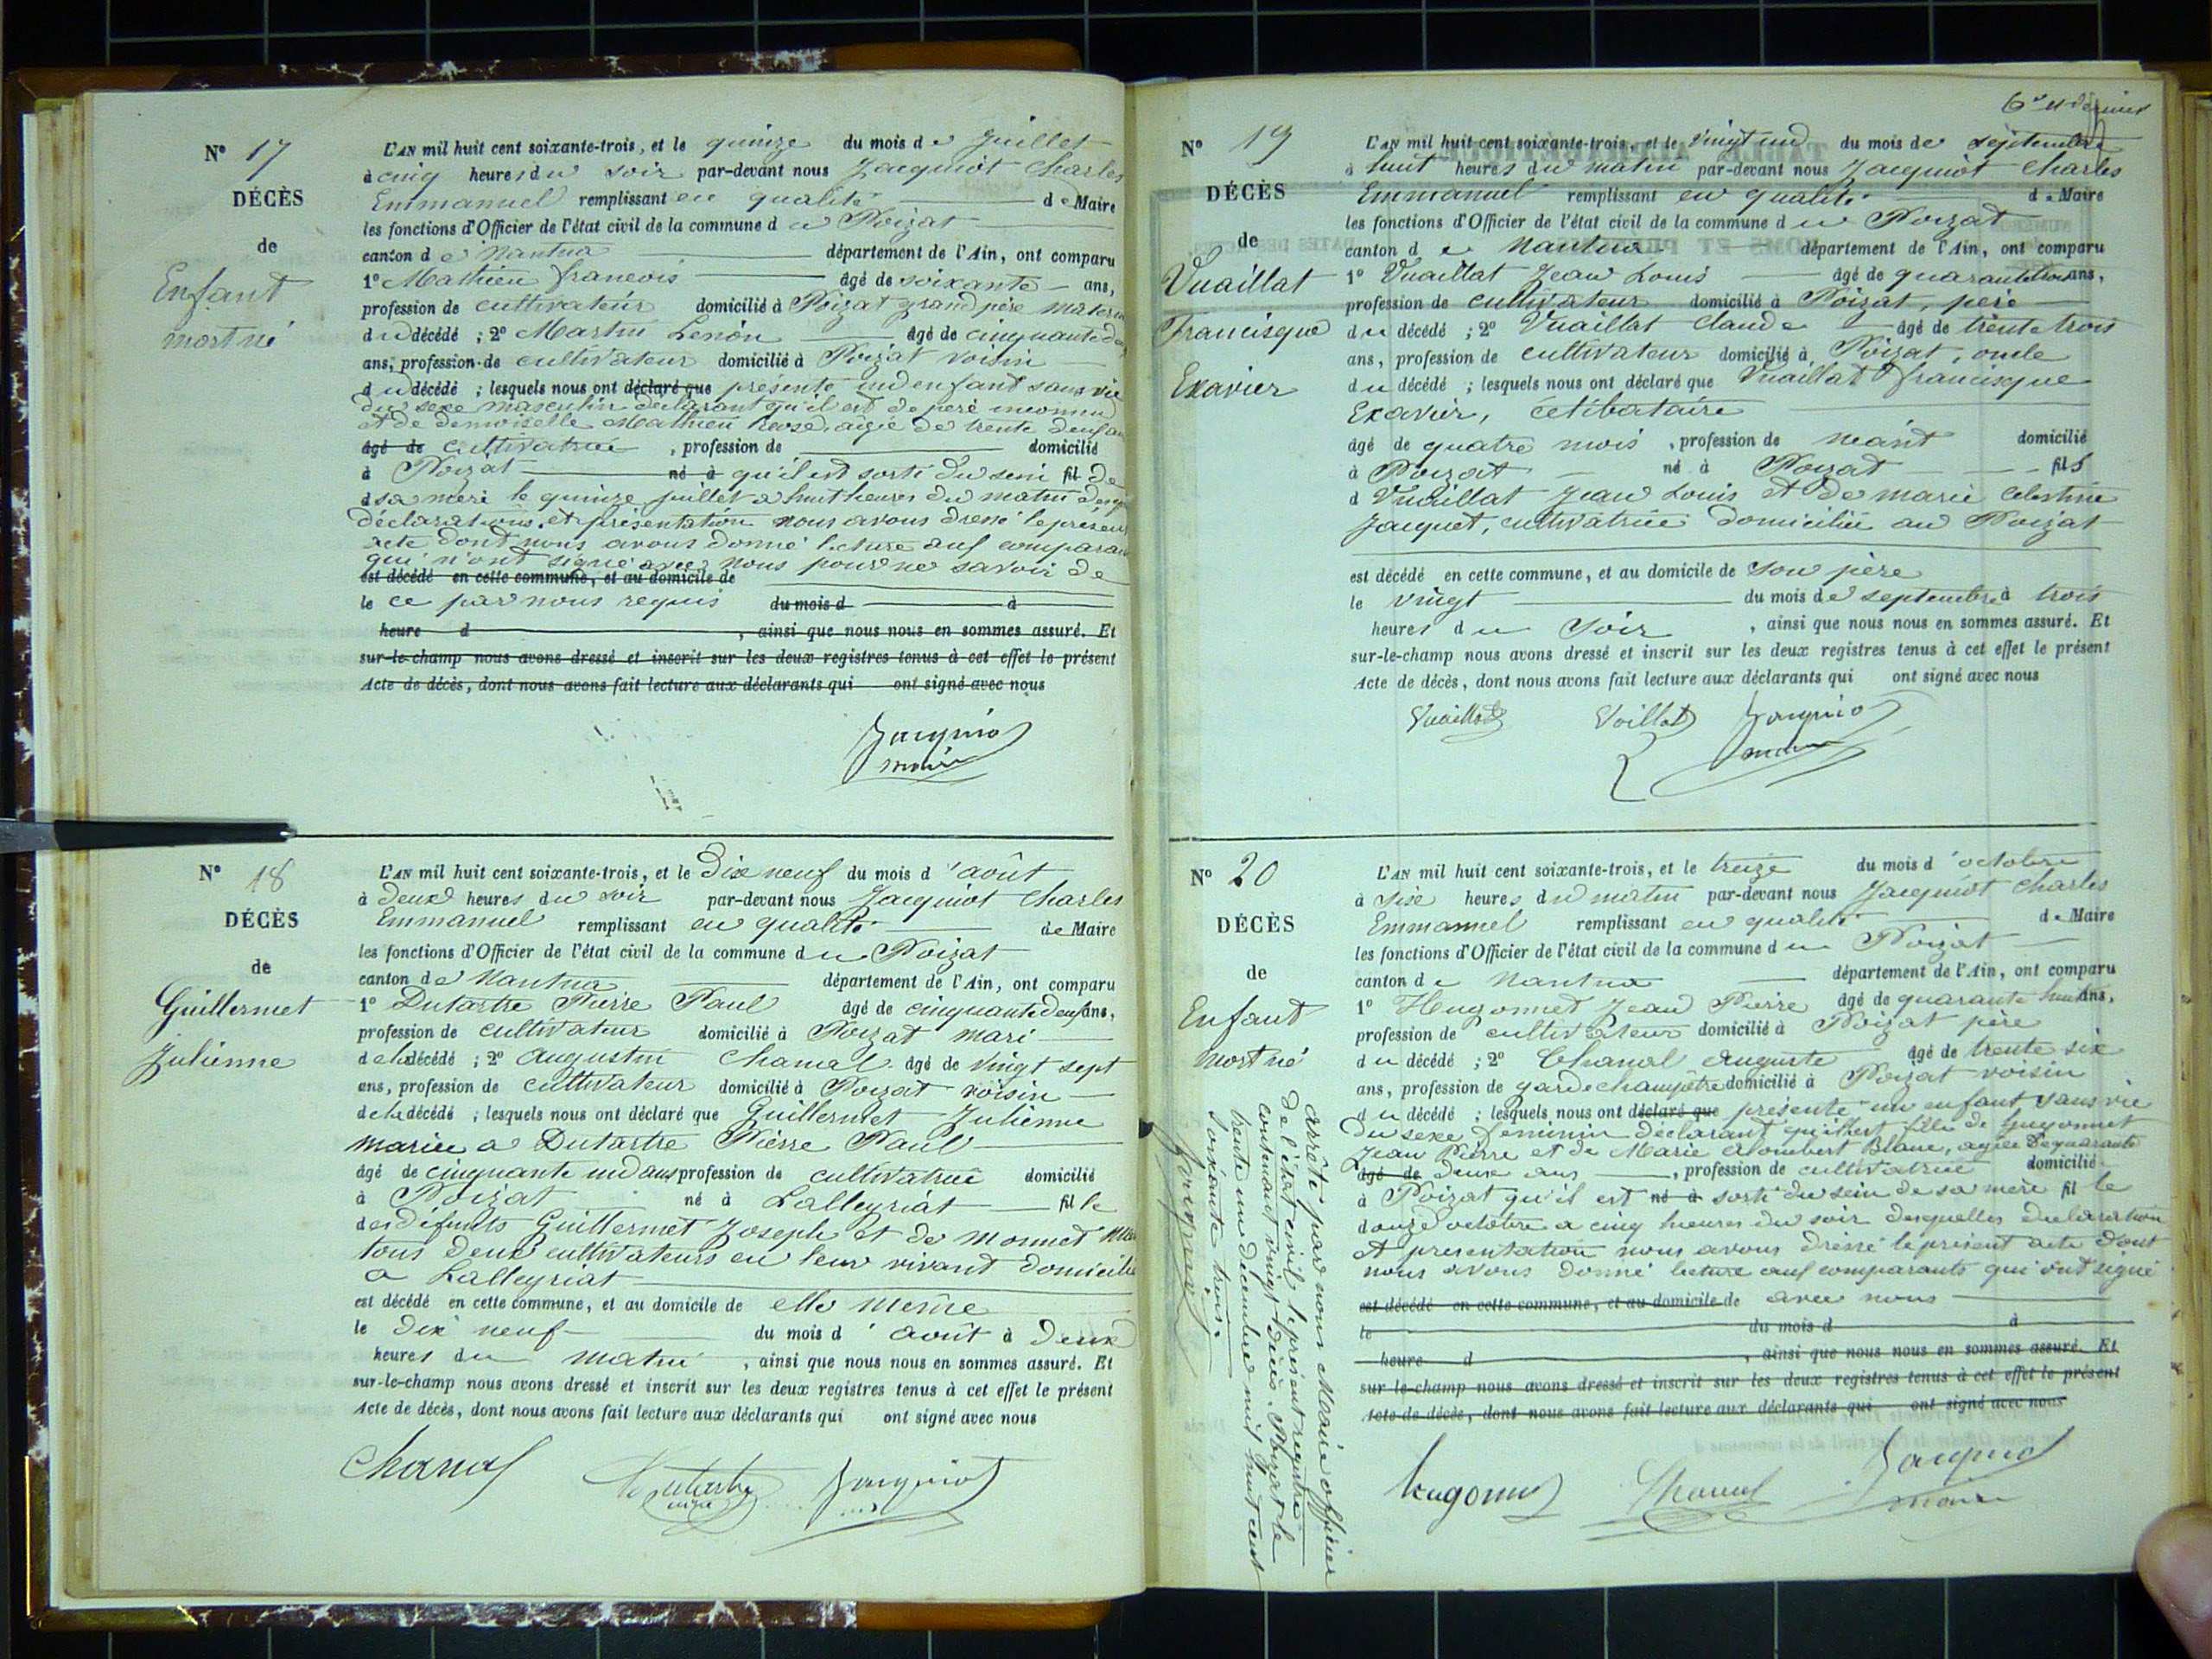 N° 17
DÉCÈS
de
Enfant
mort né
L'AN mil huit cent soixante-trois, et le quinze du mois de Juillet
à cinq heures du soir par-devant nous Jacquiot Charles
Emmanuel remplissant en qualité de Maire
les fonctions d'Officier de l'état civil de la commune du Poizat
canton de Nantua département de l'Ain, ont comparu
1° Mathieu francois âgé de soixante ans,
profession de cultivateur domicilié à Poizat grand père
du décédé ; 2° Martin Lenon âgé de cinquante
ans, profession de cultivateur domicilié à Poizat voisin
du décédé ; lesquels nous ont déclaré que présenté un enfant sans vie
du sexe masculin déclarant qu'il est de père inconnu
et de demoiselle Mathieu agée de trente deux
âgé de cultivatrice , profession de domicilié
à Poizat né à qu'il est sorti du sein fil de
d sa mère le quinze juillet à huit heures du matin
déclarations et présentation nous avons dressé le présent
acte dont nous avons donné lecture aux
qui n'ont signé avec nous pour ne savoir de
est décédé en cette commune, et au domicile de
le ce par nous requis du mois d à
heure d , ainsi que nous nous en sommes assuré. Et
sur-le-champ nous avons dressé et inscrit sur les deux registres tenus à cet effet le présent
Acte de décès, dont nous avons fait lecture aux déclarants qui ont signé avec nous
Jacquiot
maire
N° 18
DÉCÈS
de
Guillermet
Julienne
L'AN mil huit cent soixante-trois, et le Dix neuf du mois d'août
à deux heures du soir par-devant nous Jacquiot Charles
Emmanuel remplissant en qualité de Maire
les fonctions d'Officier de l'état civil de la commune du Poizat
canton de Nantua département de l'Ain, ont comparu
1° Dutartre Pierre Paul âgé de cinquante deux ans,
profession de cultivateur domicilié à Poizat mari
de la décédé ; 2° augustin Chanal âgé de vingt sept
ans, profession de cultivateur domicilié à Poizat voisin
de la décédé ; lesquels nous ont déclaré que Guillermet Julienne
mariée a Dutartre Pierre Paul
âgé de cinquante un ans profession de cultivatrice domicilié
à Poizat né à Lalleyriat fille
des défunts Guillermet Joseph et de Monnet
tous deux cultivateurs en leur vivant
a Lalleyriat
est décédé en cette commune, et au domicile de elle même
le dix neuf du mois d'août à deux
heures du matin , ainsi que nous nous en sommes assuré. Et
sur-le-champ nous avons dressé et inscrit sur les deux registres tenus à cet effet le présent
Acte de décès, dont nous avons fait lecture aux déclarants qui ont signé avec nous
Chanal Dutartre Jacquiot
6e et dernier
N° 19
DÉCÈS
de
Vuaillat
Francisque
Exavier
L'AN mil huit cent soixante-trois, et le vingt un du mois de septembre
à huit heures du matin par-devant nous Jacquiot Charles
Emmanuel remplissant en qualité de Maire
les fonctions d'Officier de l'état civil de la commune du Poizat
canton de Nantua département de l'Ain, ont comparu
1° Vuaillat Jean Louis âgé de ans,
profession de cultivateur domicilié à Poizat, père
du décédé ; 2° Vuaillat Claude âgé de trente trois
ans, profession de cultivateur domicilié à Poizat, oncle
du décédé ; lesquels nous ont déclaré que Vuaillat francisque
Exavier, célibataire
âgé de quatre mois , profession de néant domicilié
à Poizat né à Poizat fils
d Vuaillat Jean Louis et de marie Celestine
Jacquet, cultivatrice domiciliée au Poizat
est décédé en cette commune, et au domicile de son père
le vingt du mois de septembre à trois
heures du soir , ainsi que nous nous en sommes assuré. Et
sur-le-champ nous avons dressé et inscrit sur les deux registres tenus à cet effet le présent
Acte de décès, dont nous avons fait lecture aux déclarants qui ont signé avec nous
Vuaillat Voillat Jacquiot
maire
N° 20
DÉCÈS
de
Enfant
mort né
L'AN mil huit cent soixante-trois, et le treize du mois d'octobre
à sixe heures du matin par-devant nous Jacquiot Charles
Emmanuel remplissant en qualité de Maire
les fonctions d'Officier de l'état civil de la commune du Poizat
canton de Nantua département de l'Ain, ont comparu
1° Hugonnet Jean Pierre âgé de quarante huit ans,
profession de cultivateur domicilié à Poizat père
du décédé ; 2° Chanal Auguste âgé de trente six
ans, profession de garde champêtre domicilié à Poizat voisin
du décédé ; lesquels nous ont déclaré que présenté un enfant sans vie
du sexe feminin déclarant qu'il est fille de huguonnet
Jean Pierre et de Marie Blanc, agée de quarante
âgé de deux ans , profession de cultivatrice domicilié
à Poizat qu'il est né à sorti du sein de sa mère fil le
douze octobre a cinq heures du soir desquelles déclaration
et présentation nous avons dressé le présent acte dont
nous avons donné lecture aux comparants qui ont signé
est décédé en cette commune, et au domicile de avec nous
le du mois d à
heure d , ainsi que nous nous en sommes assuré. Et
sur-le-champ nous avons dressé et inscrit sur les deux registres tenus à cet effet le présent
Acte de décès, dont nous avons fait lecture aux déclarants qui ont signé avec nous
hugonnet Chanal Jacquiot
maire
arrêté par nous Maire officier
de l'état civil le présent registre
contenant vingt décès. Poizat le
trente un décembre mil huit cent
soixante trois.
Jacquiot